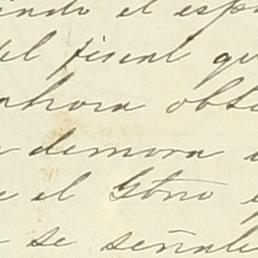 ando el esp
del fiscal qu
ahora obse
demora
e el Gbno
se señale